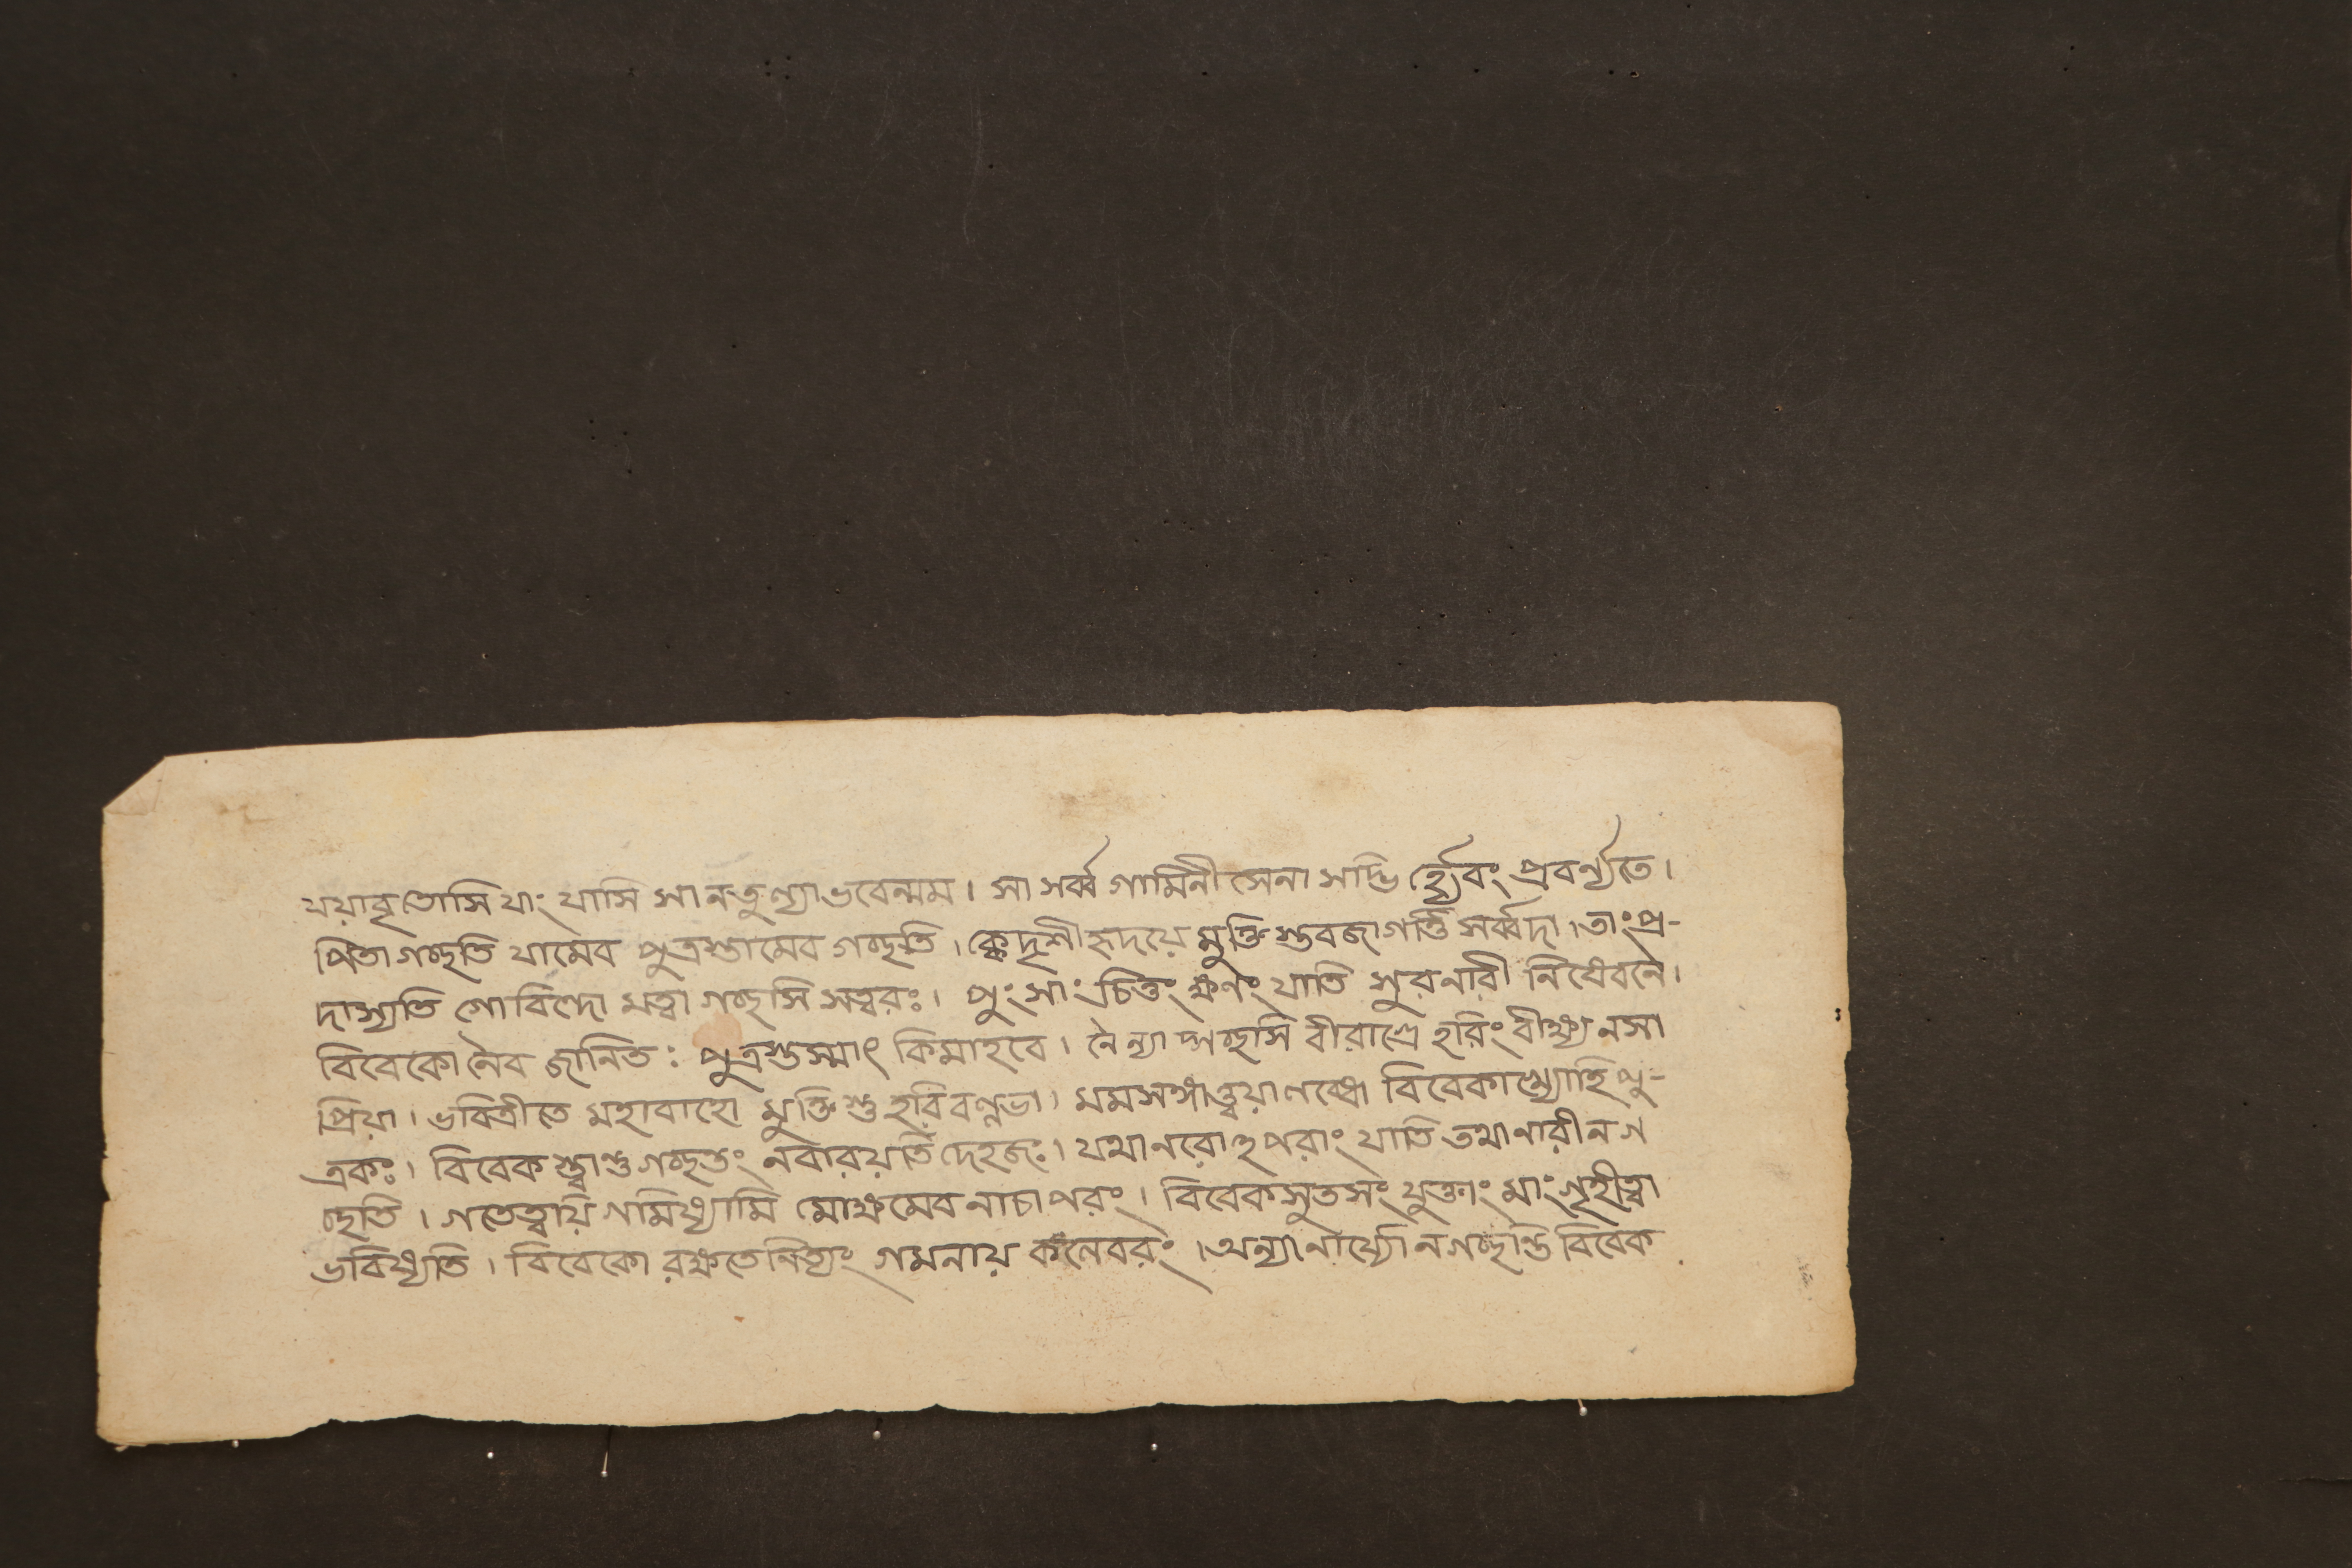 যয়াবৃতোসি যাং যাসি সা নতুণ্যা ভবেন্মম । সা সর্ব্বগামিনী সেনা সদ্ভির্হ্যেবং প্রবর্ণ্যতে ।
পিতা গচ্ছতি যামেব পুত্রস্তামেব গচ্ছতি । ক্বেদৃশী হৃদয়ে মুক্তিস্তব জাগর্ত্তি সর্ব্বদা । তাং প্র-
দাস্যতি গোবিন্দো মত্বা গচ্ছসি সত্বরঃ । পুংসাং চিত্তং ক্ষণং যাতি সুরনারী নিষেবনে ।
বিবেকো নৈব জানিতঃ পুত্রস্তস্মাৎ কিমাহবে । নৈন্যা গচ্ছসি বীরাগ্রে হরিং বীক্ষ্য নসা
প্রিয়া । ভবিত্রীতে মহাবাহো মুক্তিস্তু হরিবল্লভা । মমসঙ্গাত্ত্বয়া লব্ধো বিবেকাখ্যোহি পু-
ত্রকঃ । বিবেকস্ত্বাশু গচ্ছন্তং নবারয়তি দেহজঃ । যথা নরোহপরাং যাতি তথা নারী ন গ
চ্ছতি । গতেত্বয়ি গমিষ্যামি মোক্ষমেব নাচাপরং । বিবেকসুতসংযুক্তাং মাং গৃহীত্বা
ভবিষ্যতি । বিবেকো রক্ষতে নিত্যং গমনায় কলেবরং । অন্যা নার্য্যো ন গচ্ছন্তি বিবেক